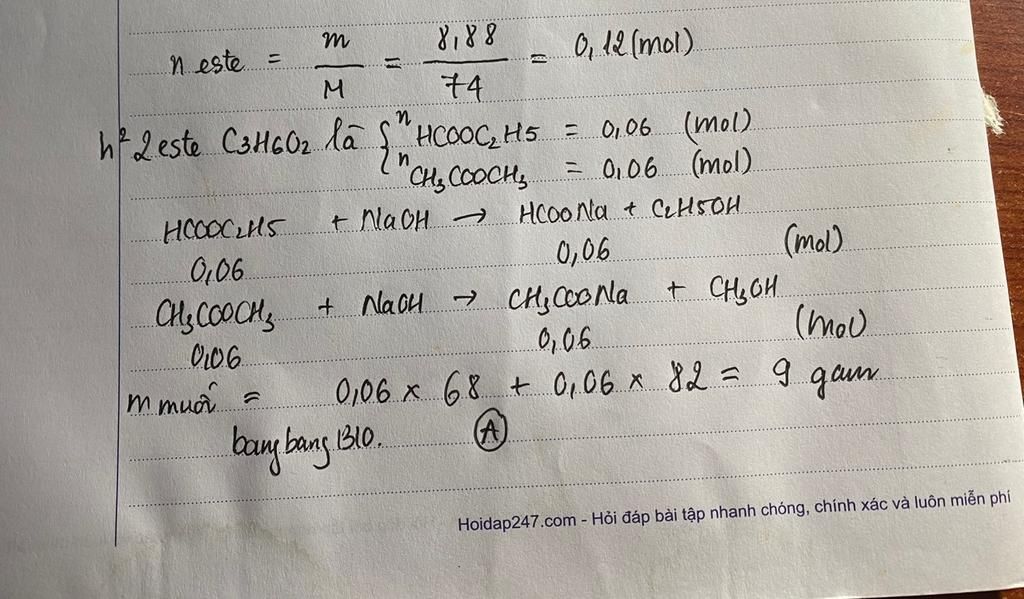 n este = m/M = 8,88/74 = 0,12 (mol)
h² 2 este C3H6O2 là { nHCOOC2H5 = 0,06 (mol)
nCH3COOCH3 = 0,06 (mol)
HCOOC2H5 + NaOH → HCOONa + C2H5OH
0,06 0,06 (mol)
CH3COOCH3 + NaOH → CH3COONa + CH3OH
0,06 0,06 (mol)
m muối = 0,06 x 68 + 0,06 x 82 = 9 gam
bangbang1310. A
Hoidap247.com - Hỏi đáp bài tập nhanh chóng, chính xác và luôn miễn phí